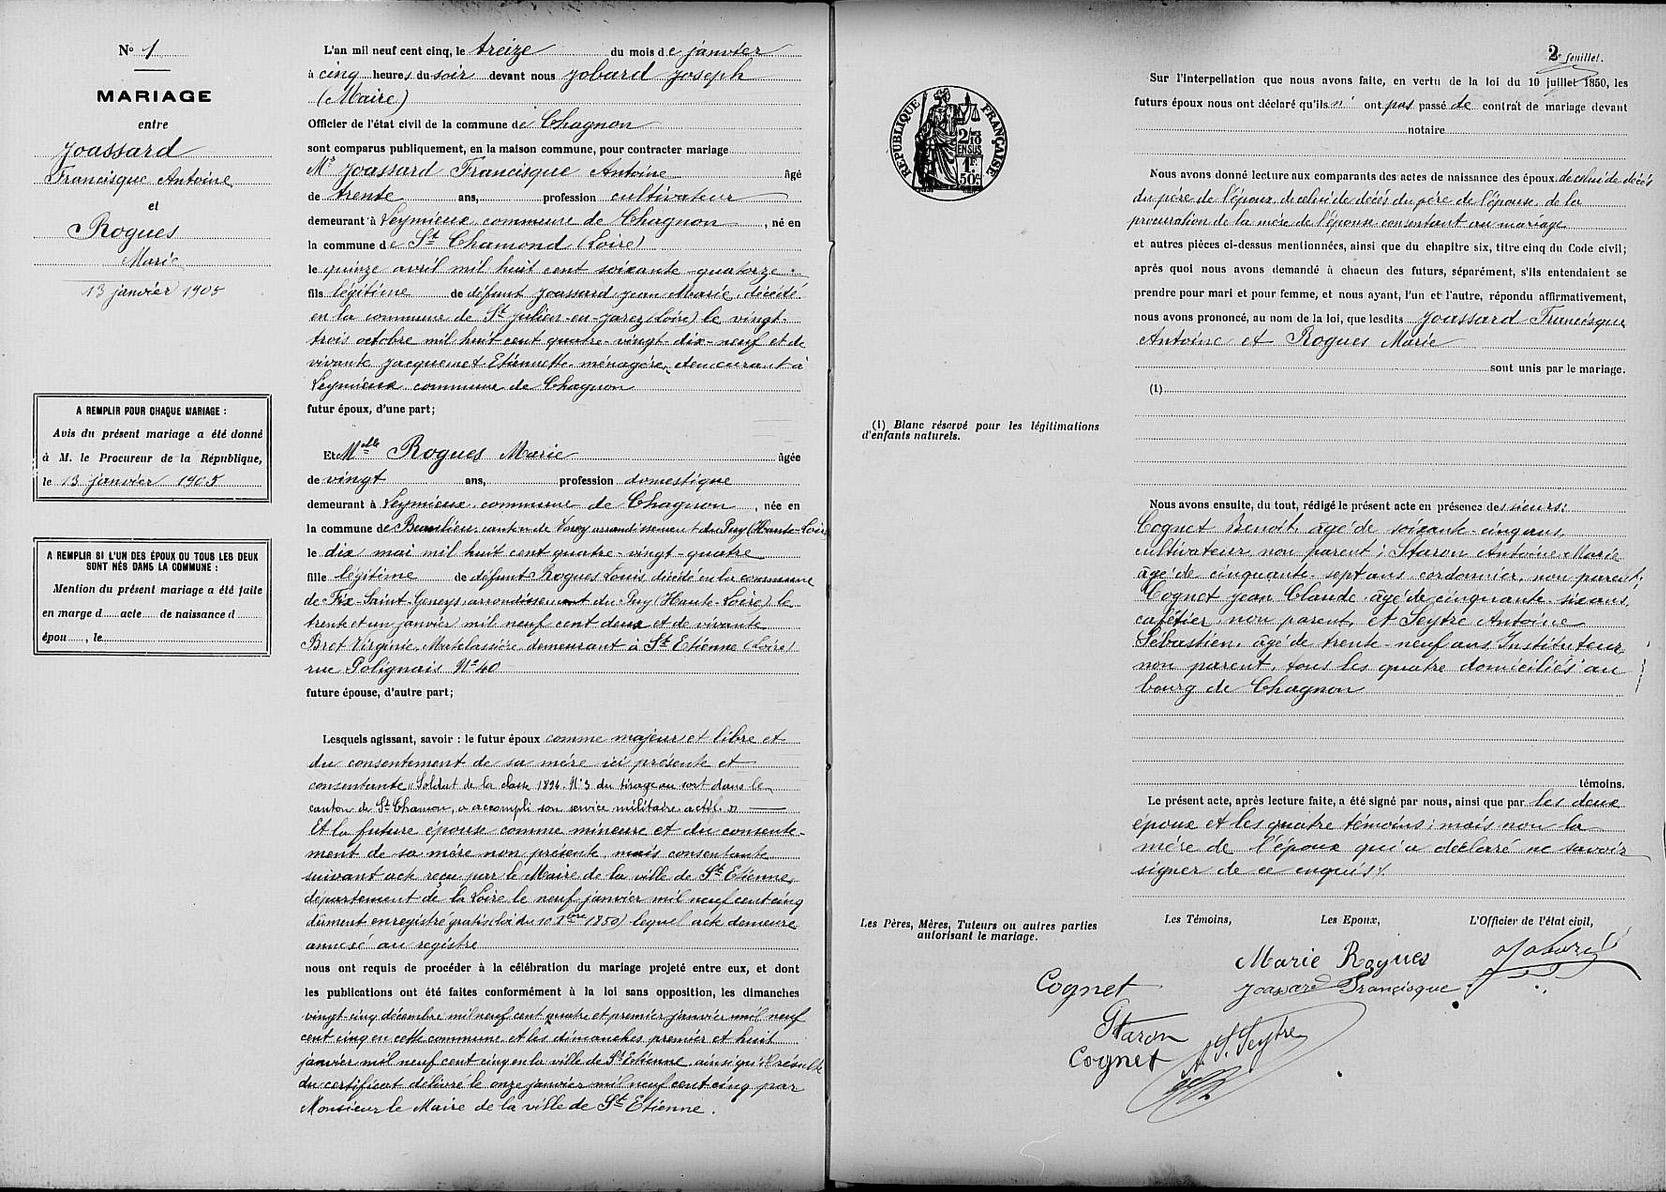 N° 1
MARIAGE
entre
Joassard
Francisque Antoine
et
Rogues
Marie
13 janvier 1905
A REMPLIR POUR CHAQUE MARIAGE :
Avis du présent mariage a été donné
à M. le Procureur de la République,
le 13 janvier 1905
A REMPLIR SI L'UN DES ÉPOUX OU TOUS LES DEUX
SONT NÉS DANS LA COMMUNE :
Mention du présent mariage a été faite
en marge d acte de naissance d
épou , le
L'an mil neuf cent cinq, le treize du mois de janvier
à cinq heures du soir devant nous Jobard Joseph
(Maire)
Officier de l'état civil de la commune de Chagnon
sont comparus publiquement, en la maison commune, pour contracter mariage
Mr Joassard Francisque Antoine âgé
de trente ans, profession cultivateur
demeurant à Leymieux commune de Chagnon, né en
la commune de St Chamond (Loire)
le quinze avril mil huit cent soixante-quatorze
fils légitime de défunt Joassard Jean Marie, décédé
en la commune de St Julien-en-Jarez (Loire) le vingt-
trois octobre mil huit cent quatre-vingt-dix-neuf et de
vivante Jacquemet Etiennette ménagère, demeurant à
Leymieux commune de Chagnon
futur époux, d'une part;
Et Melle Rogues Marie âgée
de vingt ans, profession domestique
demeurant à Leymieux commune de Chagnon, née en
la commune de Beaulieu canton de Vorey arrondissement du Puy (Haute-Loire
le dix mai mil huit cent quatre-vingt-quatre
fille légitime de défunt Rogues Louis, décédé en la commune
de Fix-Saint-Geneys arrondissement du Puy (Haute-Loire) le
trente et un janvier mil neuf cent deux et de vivante
Bret Virginie, Matelassière demeurant à St Etienne (Loire)
rue Polignais N° 40
future épouse, d'autre part;
Lesquels agissant, savoir : le futur époux comme majeur et libre et
du consentement de sa mère ici présente et
consentante, Soldat de la classe 1894. N° 3 du tirage au sort dans le
canton de St Chamon, a accompli son service militaire actif.
Et la future épouse comme mineure et du consente-
ment de sa mère non présente mais consentante
suivant acte reçu par le Maire de la ville de St Etienne,
département de la Loire le neuf janvier mil neuf cent cinq
dûment enregistré gratis (loi du 10 Xbre 1850) lequel acte demeure
annexé au registre
nous ont requis de procéder à la célébration du mariage projeté entre eux, et dont
les publications ont été faites conformément à la loi sans opposition, les dimanches
vingt cinq décembre mil neuf cent quatre et premier janvier mil neuf
cent cinq en cette commune et les dimanches premier et huit
janvier mil neuf cent cinq en la ville de St Etienne ainsi qu'il résulte
du certificat délivré le onze janvier mil neuf cent cinq par
Monsieur le Maire de la ville de St Etienne.
RÉPUBLIQUE FRANÇAISE
EN SUS
1 F.
50 c.
(1) Blanc réservé pour les légitimations
d'enfants naturels.
Les Pères, Mères, Tuteurs ou autres parties
autorisant le mariage.
2e feuillet.
Sur l'interpellation que nous avons faite, en vertu de la loi du 10 juillet 1850, les
futurs époux nous ont déclaré qu'ils n' ont pas passé de contrat de mariage devant
notaire
Nous avons donné lecture aux comparants des actes de naissance des époux, de celui de décès
du père de l'époux, de celui de décès du père de l'épouse, de la
procuration de la mère de l'épouse consentant au mariage
et autres pièces ci-dessus mentionnées, ainsi que du chapitre six, titre cinq du Code civil;
après quoi nous avons demandé à chacun des futurs, séparément, s'ils entendaient se
prendre pour mari et pour femme, et nous ayant, l'un et l'autre, répondu affirmativement,
nous avons prononcé, au nom de la loi, que lesdits Joassard Francisque
Antoine et Rogues Marie
sont unis par le mariage.
(1)
Nous avons ensuite, du tout, rédigé le présent acte en présence des sieurs:
Cognet Benoit, âgé de soixante-cinq ans,
cultivateur, non parent; Staron Antoine Marie
âgé de cinquante-sept ans cordonnier, non parent;
Cognet Jean Claude âgé de cinquante-six ans,
cafetier, non parent, et Seytre Antoine
Sébastien, âgé de trente-neuf ans, Instituteur
non parent, tous les quatre domiciliés au
bourg de Chagnon
témoins.
Le présent acte, après lecture faite, a été signé par nous, ainsi que par les deux
époux et les quatre témoins; mais non la
mère de l'époux qui a déclaré ne savoir
signer de ce enquis
Les Témoins, Les Epoux, L'Officier de l'état civil,
Marie Rogues Jobard
Cognet Joassard Francisque
Staron
Cognet A. S. Seytre